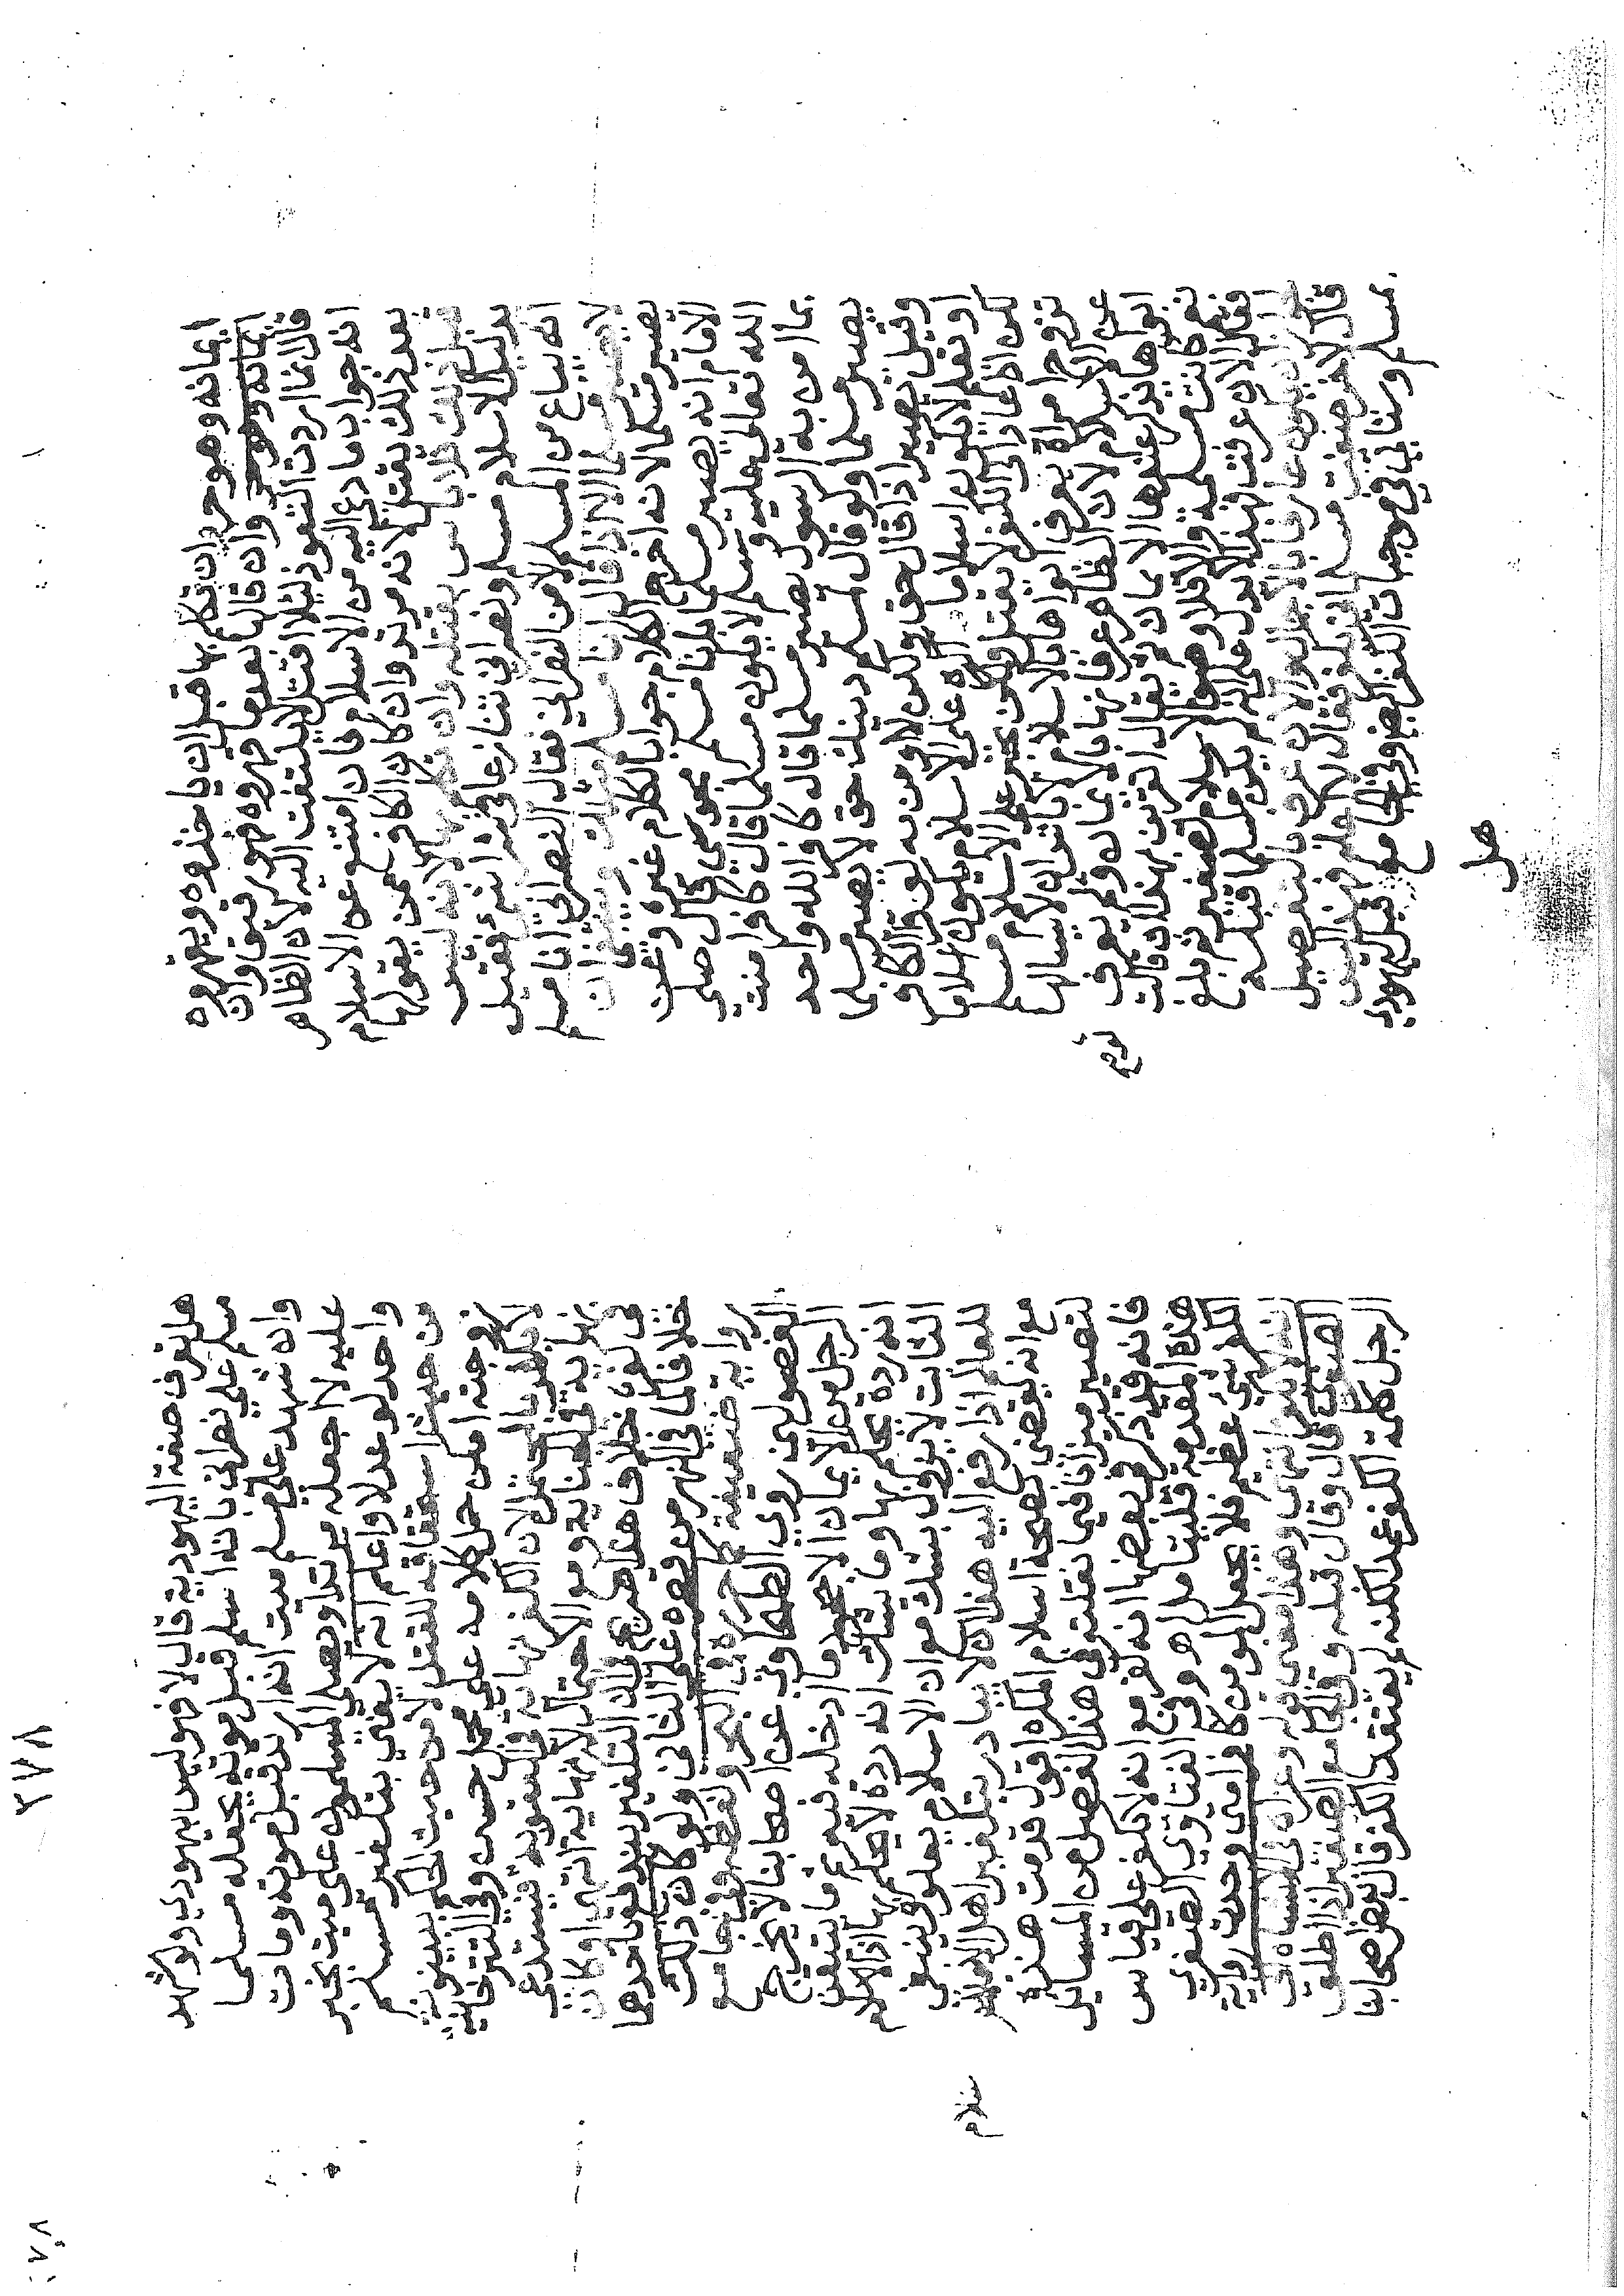 ايمانه وهو حر وان تكلم بها قبل ان ياخذوه ويقهروه
ايمانه وهو حر وان قالها بعدما قهروه فهو رقيق وان
قال انما اردت التعوذ ليلا اقتل لا يلتفت اليه لان الظاهر
انه جواب ما دعي اليه من الاسلام فان امتنع عن الاسلام
بعد ذلك يقتل لانه مرتد وان كان الكافر ممن يقولها
قبل ذلك فلا باس بقتله وان تكلم بها لانه ليس
بدليل الاسلام مسلم ونصراني تنازعا في شراء شيء فقيل
انه يباع من المسلم لا من النصراني فقال النصراني انا مسلم
لا يصير مسلما الا اذا قال انا مسلم مثلك
يصير مسلما لانه اخرج الكلام جوابا لكلام غيره وعن
الامام انه يصير مسلما بانا مسلم مجوسي قال صلى
الله تعالى عليه وسلم لا يكون مسلما قال كافر امنت
بما امن به الرسول يصير مسلما قال كافر الله واحد
يصير مسلما ولو قال لمسلم دينك حق لا يصير مسلما
وقيل يصير الا اذا قال حق ولكن لا اومن به لقن الكافر
او تعلم لا يكون اسلاما اكره على الاسلام يكون اسلاما
لكن اذا عاد الى الكفر لا يقتل ولكن يجبر على الاسلام مسلم
تزوج امراة يعرف ابواها بالاسلام لا باس ان لا يسالها
عن الاسلام لان الظاهر عرفانها بالايمان ولو لم يعرف
ابواها يذكر عندها الايمان ثم يقال اتقرين بهذا فان قالت
نعم كانت مسلمة والا فلا وصف الاسلام لصغير ثم بلغ
فقال الان عرفت فهذا يدل على انه لم يكن مسلما قبله
ان يكون عارفا بالاجمال والان عرف بالتفصيل
قال لاخر مسلم انت ام كفر فقال لا اعلم فهذا ليس
بمسلم وسياتي في موجبات الكفر وفي الجامع قيل ليهودي
هل
٢٧٨
هل تعرف صفة اليهودية قال لا فهو ليس بيهودي ولو شهد
مسلم على نصراني بانه اسلم قبل موته يجعله مسلما
وان شهد على مسلم ميت انه ارتد قبل موته ومات
عليه لا اجعله مرتدا ويصلي المسلمون على ميت بخبر
واحد لو عدلا واعلم انه لا يفتي بتكفير مسلم
من حيث استحقاقه للقتل لا من حيث الحكم ببينونة
زوجته امكن حمل كلامه على محمل حسن وفي التترخانية
لا يكفر بالمحتمل لان الكفر نهاية في العقوبة فيستدعي
نهاية في الجناية ومع الاحتمال لا نهاية انتهى او كان
في كفره خلاف هذا وان التكفير يندفع باحدهما
خلافا لما في النهر من قصره على الثاني ولو كان ذلك
رواية ضعيفة كما حرره في البحر ولفظه وفي جامع
الفصولين روى الطحاوي عن اصحابنا لا يخرج
الرجل من الايمان الا جحود ما ادخله فيه ثم ما تيقن
انه ردة يحكم بها وما يشك انه ردة لا يحكم بها اذ الاسلام
الثابت لا يزول بشك مع ان الاسلام يعلو وينبغي
للعالم اذا رفع اليه هذا ان لا يبادر بتكفير اهل الاسلام
مع انه يقضي بصحة اسلام المكره اقول قدمت هذه
لتصير ميزانا فيما نقلته في هذا الفصل من المسايل
فانه قد ذكر في بعضها انه كفر مع انه لا يكفر على قياس
هذه المقدمة فليتامل اه وفي الفتاوى الصغرى
الكفر شيء عظيم فلا اجعل المومن كافرا متى وجدت رواية
انه لا يكفر انتهى وهذا معنى قوله وعزاه في الاشباه الى
الصغرى قال وقال قبله وفي جامع الصغير اذا اطلق
الرجل كلمة الكفر عمدا لكنه لم يعتقد الكفر قال بعض اصحابنا